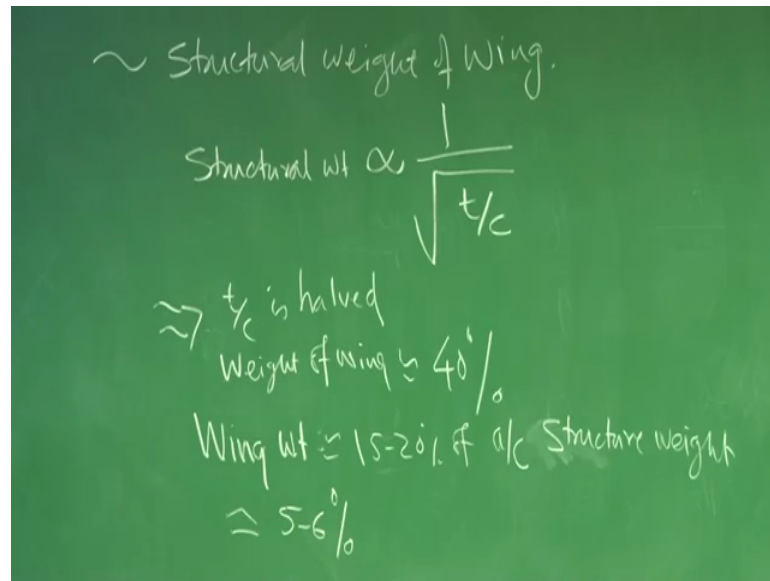 ~ Structural weight of Wing.
Structural wt ∝ 1/√(t/c)
⇒ t/c is halved
Weight of wing ≃ 40%
Wing wt ≃ 15-20% of a/c Structure weight
≃ 5-6%